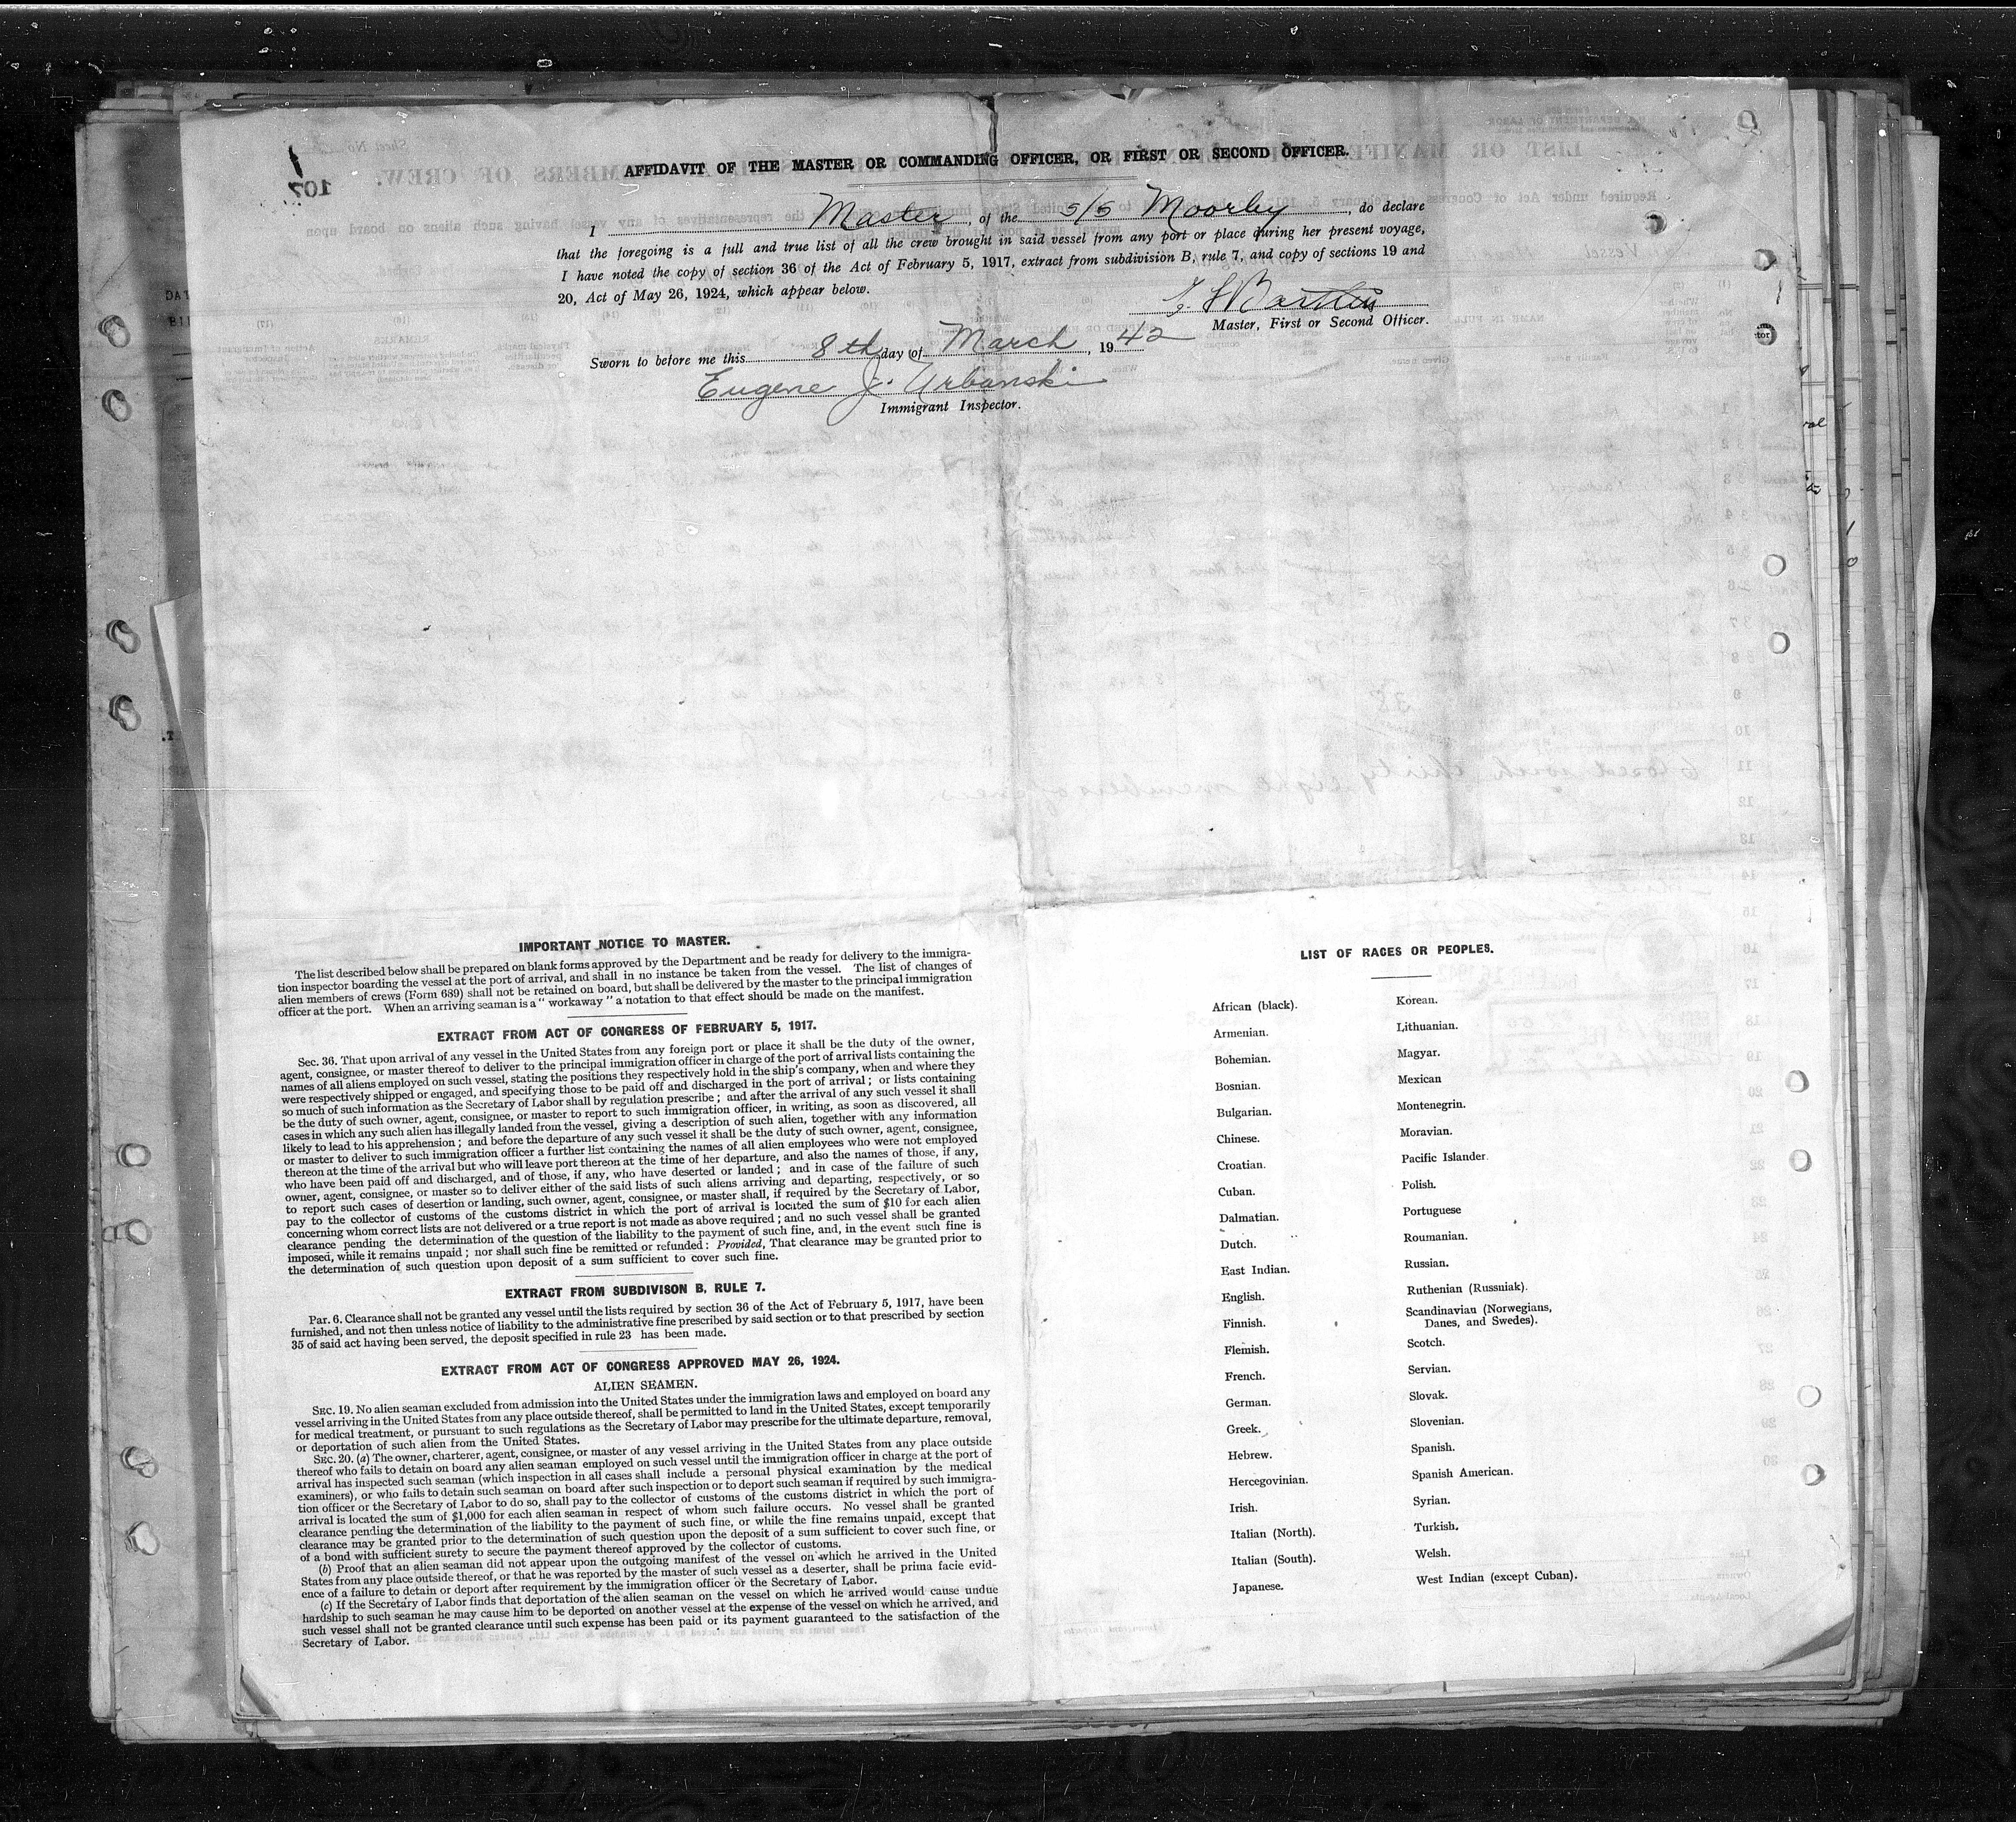 AFFIDAVIT OF THE MASTER OR COMMANDING OFFICER, OR FIRST OR SECOND OFFICER.
I Master, of the s/s Moorby, do declare
that the foregoing is a full and true list of all the crew brought in said vessel from any port or place during her present voyage,
I have noted the copy of section 36 of the Act of February 5, 1917, extract from subdivision B, rule 7, and copy of sections 19 and
20, Act of May 26, 1924, which appear below.
Master, First or Second Officer.
Sworn to before me this 8th day of March, 1942
Eugene J. Urbanski
Immigrant Inspector.
IMPORTANT NOTICE TO MASTER.
The list described below shall be prepared on blank forms approved by the Department and be ready for delivery to the immigra-
tion inspector boarding the vessel at the port of arrival, and shall in no instance be taken from the vessel. The list of changes of
alien members of crews (Form 689) shall not be retained on board, but shall be delivered by the master to the principal immigration
officer at the port. When an arriving seaman is a "workaway" a notation to that effect should be made on the manifest.
EXTRACT FROM ACT OF CONGRESS OF FEBRUARY 5, 1917.
Sec. 36. That upon arrival of any vessel in the United States from any foreign port or place it shall be the duty of the owner,
agent, consignee, or master thereof to deliver to the principal immigration officer in charge of the port of arrival lists containing the
names of all aliens employed on such vessel, stating the positions they respectively hold in the ship's company, when and where they
were respectively shipped or engaged, and specifying those to be paid off and discharged in the port of arrival; or lists containing
so much of such information as the Secretary of Labor shall by regulation prescribe; and after the arrival of any such vessel it shall
be the duty of such owner, agent, consignee, or master to report to such immigration officer, in writing, as soon as discovered, all
cases in which any such alien has illegally landed from the vessel, giving a description of such alien, together with any information
likely to lead to his apprehension; and before the departure of any such vessel it shall be the duty of such owner, agent, consignee,
or master to deliver to such immigration officer a further list containing the names of all alien employees who were not employed
thereon at the time of the arrival but who will leave port thereon at the time of her departure, and also the names of those, if any,
who have been paid off and discharged, and of those, if any, who have deserted or landed; and in case of the failure of such
owner, agent, consignee, or master so to deliver either of the said lists of such aliens arriving and departing, respectively, or so
to report such cases of desertion or landing, such owner, agent, consignee, or master shall, if required by the Secretary of Labor,
pay to the collector of customs of the customs district in which the port of arrival is located the sum of $10 for each alien
concerning whom correct lists are not delivered or a true report is not made as above required; and no such vessel shall be granted
clearance pending the determination of the question of the liability to the payment of such fine, and, in the event such fine is
imposed, while it remains unpaid; nor shall such fine be remitted or refunded: Provided, That clearance may be granted prior to
the determination of such question upon deposit of a sum sufficient to cover such fine.
EXTRACT FROM SUBDIVISON B, RULE 7.
Par. 6. Clearance shall not be granted any vessel until the lists required by section 36 of the Act of February 5, 1917, have been
furnished, and not then unless notice of liability to the administrative fine prescribed by said section or to that prescribed by section
35 of said act having been served, the deposit specified in rule 23 has been made.
EXTRACT FROM ACT OF CONGRESS APPROVED MAY 26, 1924.
ALIEN SEAMEN.
SEC. 19. No alien seaman excluded from admission into the United States under the immigration laws and employed on board any
vessel arriving in the United States from any place outside thereof, shall be permitted to land in the United States, except temporarily
for medical treatment, or pursuant to such regulations as the Secretary of Labor may prescribe for the ultimate departure, removal,
or deportation of such alien from the United States.
SEC. 20. (a) The owner, charterer, agent, consignee, or master of any vessel arriving in the United States from any place outside
thereof who fails to detain on board any alien seaman employed on such vessel until the immigration officer in charge at the port of
arrival has inspected such seaman (which inspection in all cases shall include a personal physical examination by the medical
examiners), or who fails to detain such seaman on board after such inspection or to deport such seaman if required by such immigra-
tion officer or the Secretary of Labor to do so, shall pay to the collector of customs of the customs district in which the port of
arrival is located the sum of $1,000 for each alien seaman in respect of whom such failure occurs. No vessel shall be granted
clearance pending the determination of the liability to the payment of such fine, or while the fine remains unpaid, except that
clearance may be granted prior to the determination of such question upon the deposit of a sum sufficient to cover such fine, or
of a bond with sufficient surety to secure the payment thereof approved by the collector of customs.
(b) Proof that an alien seaman did not appear upon the outgoing manifest of the vessel on which he arrived in the United
States from any place outside thereof, or that he was reported by the master of such vessel as a deserter, shall be prima facie evid-
ence of a failure to detain or deport after requirement by the immigration officer or the Secretary of Labor.
(c) If the Secretary of Labor finds that deportation of the alien seaman on the vessel on which he arrived would cause undue
hardship to such seaman he may cause him to be deported on another vessel at the expense of the vessel on which he arrived, and
such vessel shall not be granted clearance until such expense has been paid or its payment guaranteed to the satisfaction of the
Secretary of Labor.
LIST OF RACES OR PEOPLES.
African (black).
Armenian.
Bohemian.
Bosnian.
Bulgarian.
Chinese.
Croatian.
Cuban.
Dalmatian.
Dutch.
East Indian.
English.
Finnish.
Flemish.
French.
German.
Greek.
Hebrew.
Hercegovinian.
Irish.
Italian (North).
Italian (South).
Japanese.
Korean.
Lithuanian.
Magyar.
Mexican
Montenegrin.
Moravian.
Pacific Islander.
Polish.
Portuguese
Roumanian.
Russian.
Ruthenian (Russniak).
Scandinavian (Norwegians,
Danes, and Swedes).
Scotch.
Servian.
Slovak.
Slovenian.
Spanish.
Spanish American.
Syrian.
Turkish.
Welsh.
West Indian (except Cuban).